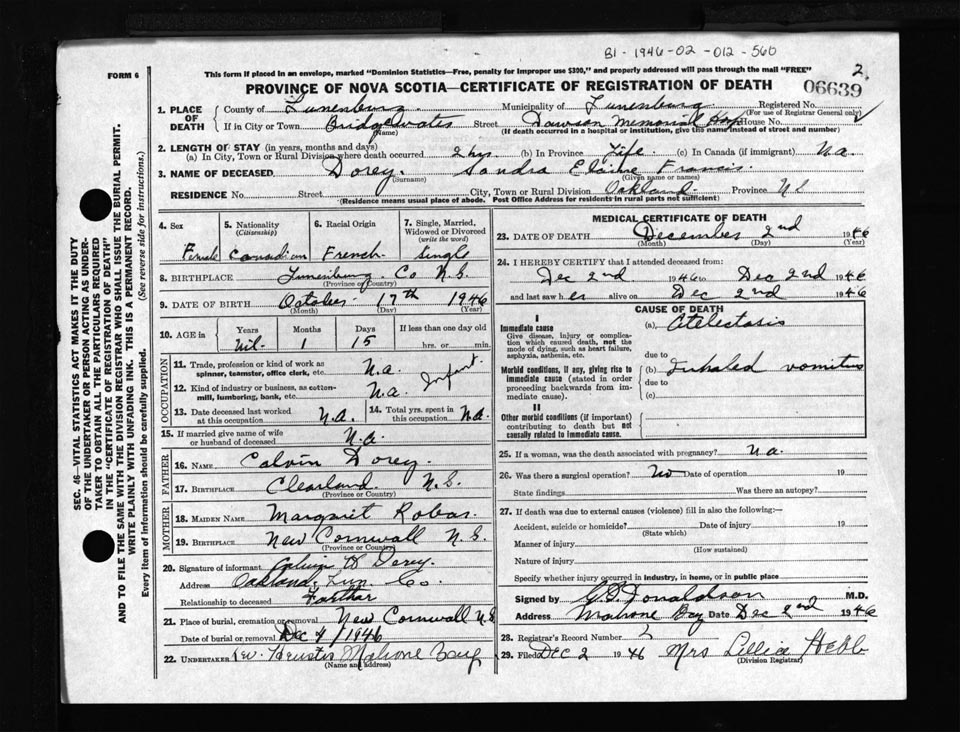 B1 - 1946-02-012-560
2.
06639
FORM 6
This form if placed in an envelope, marked "Dominion Statistics—Free, penalty for improper use $300," and properly addressed will pass through the mail "FREE"
PROVINCE OF NOVA SCOTIA—CERTIFICATE OF REGISTRATION OF DEATH
SEC. 46—VITAL STATISTICS ACT MAKES IT THE DUTY
OF THE UNDERTAKER OR PERSON ACTING AS UNDER-
TAKER TO OBTAIN ALL THE PARTICULARS REQUIRED
IN THE "CERTIFICATE OF REGISTRATION OF DEATH"
AND TO FILE THE SAME WITH THE DIVISION REGISTRAR WHO SHALL ISSUE THE BURIAL PERMIT.
WRITE PLAINLY WITH UNFADING INK. THIS IS A PERMANENT RECORD.
Every item of information should be carefully supplied. (See reverse side for instructions.)
1. PLACE OF DEATH County of Lunenburg Municipality of Lunenburg Registered No.
(For use of Registrar General only)
If in City or Town Bridgewater Street Dawson Memorial Hosp House No.
(Name) (If death occurred in a hospital or institution, give the name instead of street and number)
2. LENGTH OF STAY (in years, months and days)
(a) In City, Town or Rural Division where death occurred 2 hrs (b) In Province Life. (c) In Canada (if immigrant) Na
3. NAME OF DECEASED Dorey. Sandra Elaine Francis.
(Surname) (Given name or names)
RESIDENCE No. Street City, Town or Rural Division Oakland Province NS
(Residence means usual place of abode. Post Office Address for residents in rural parts not sufficient)
4. Sex 5. Nationality (Citizenship) 6. Racial Origin 7. Single, Married, Widowed or Divorced (write the word)
Female Canadian French Single
8. BIRTHPLACE Lunenburg Co N.S.
(Province or Country)
9. DATE OF BIRTH October 17th 1946
(Month) (Day) (Year)
10. AGE in Years Months Days If less than one day old
Nil- 1 15 hrs. or min.
OCCUPATION
11. Trade, profession or kind of work as spinner, teamster, office clerk, etc. N.a.
Infant.
12. Kind of industry or business, as cotton-mill, lumbering, bank, etc. N.a.
13. Date deceased last worked at this occupation N.a. 14. Total yrs. spent in this occupation Na.
15. If married give name of wife or husband of deceased N.a.
FATHER
16. NAME Calvin Dorey.
17. BIRTHPLACE Clearland N.S.
(Province or Country)
MOTHER
18. MAIDEN NAME Margaret Robar.
19. BIRTHPLACE New Cornwall N.S.
(Province or Country)
20. Signature of informant Calvin H Dorey.
Address Oakland, Lun. Co.
Relationship to deceased Farthar
21. Place of burial, cremation or removal New Cornwall N.S
Date of burial or removal Dec 4/1946
22. UNDERTAKER Mahone Bay
(Name and address)
MEDICAL CERTIFICATE OF DEATH
23. DATE OF DEATH December 2nd 1946
(Month) (Day) (Year)
24. I HEREBY CERTIFY that I attended deceased from:
Dec 2nd 1946 to Dec 2nd 1946
and last saw her alive on Dec 2nd 1946
CAUSE OF DEATH
I
Immediate cause (a) Atelectasis
Give disease, injury or complication which caused death, not the mode of dying, such as heart failure, asphyxia, asthenia, etc.
due to
Morbid conditions, if any, giving rise to immediate cause (stated in order proceeding backwards from immediate cause). (b) Inhaled vomitus
due to
(c)
II
Other morbid conditions (if important) contributing to death but not causally related to immediate cause.
25. If a woman, was the death associated with pregnancy? na.
26. Was there a surgical operation? No Date of operation 19
State findings Was there an autopsy?
27. If death was due to external causes (violence) fill in also the following:—
Accident, suicide or homicide? Date of injury 19
(State which)
Manner of injury
(How sustained)
Nature of injury
Specify whether injury occurred in industry, in home, or in public place
Signed by Donaldson M.D.
Address Mahone Bay Date Dec 2nd 1946
28. Registrar's Record Number 2
29. Filed DEC 2 1946 Mrs Lillia Hebb
(Division Registrar)